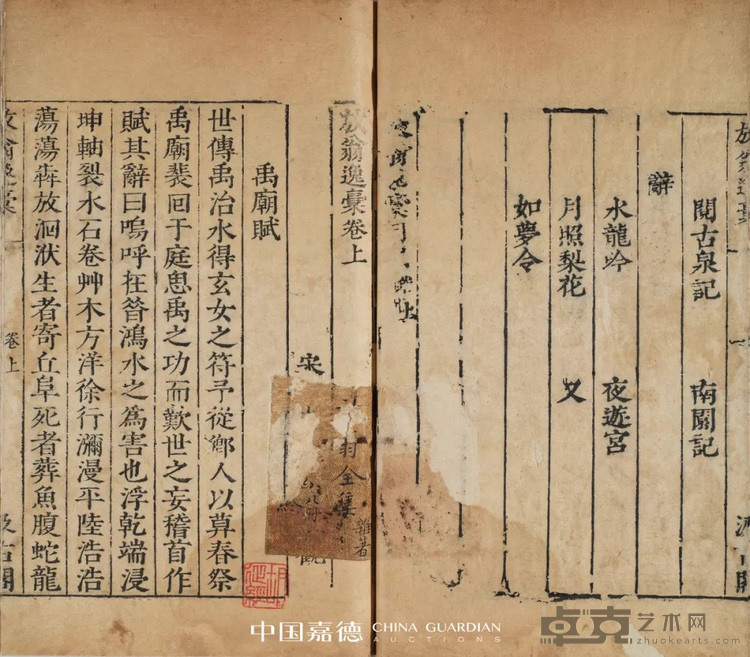 放翁逸稾
閱古泉記　南園記
辭
水龍吟　夜遊宮
月照梨花　又
如夢令
放翁逸稾卷上
宋
禹廟賦
世傳禹治水得玄女之符予從鄉人以莫春祭
禹廟裴回于庭思禹之功而歎世之妄稽首作
賦其辭曰嗚呼在昔鴻水之為害也浮乾端浸
坤軸裂水石卷艸木方洋徐行瀰漫平陸浩浩
蕩蕩奔放洄洑生者寄丘阜死者葬魚腹蛇龍
卷上
中国嘉德 CHINA GUARDIAN
AUCTIONS
卓克艺术网
zhuokearts.com